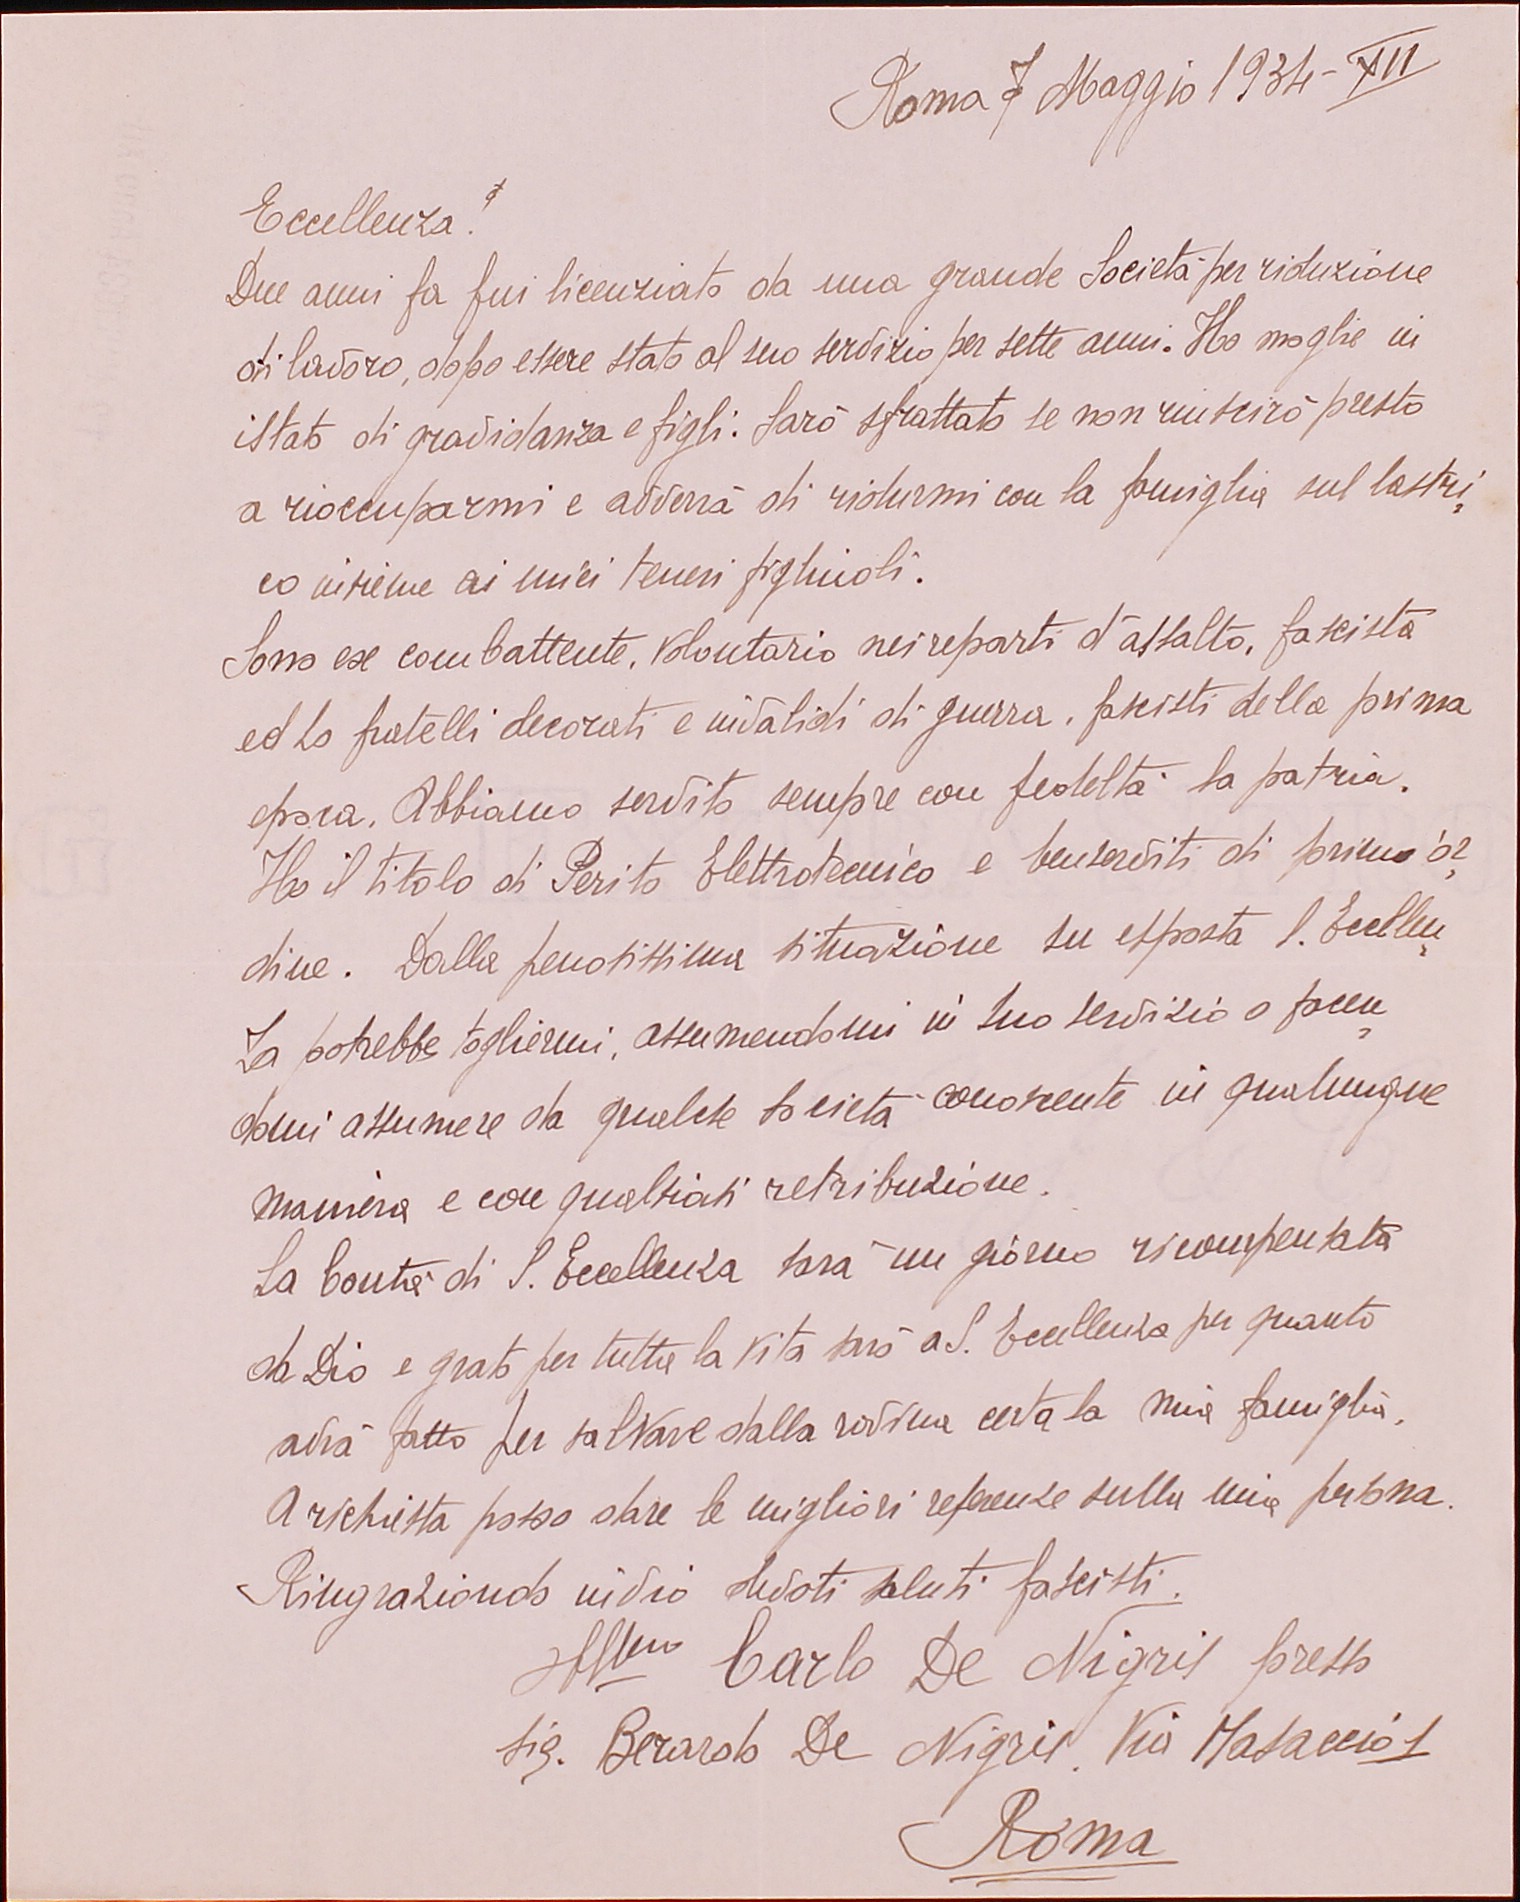 Roma 7 Maggio 1934-XII
Eccellenza!
Due anni fa fui licenziato da una grande Società per riduzione
di lavoro, dopo essere stato al suo servizio per sette anni. Ho moglie in
istato di gravidanza e figli. Sarò sfrattato se non riuscirò presto
a rioccuparmi e avverrà di ridurmi con la famiglia sul lastri-
co insieme ai miei teneri figliuoli.
Sono ex combattente, volontario nei reparti d'assalto, fascista
ed ho fratelli decorati e invalidi di guerra, fascisti della prima
epoca. Abbiamo servito sempre con fedeltà la patria.
Ho il titolo di Perito Elettrotecnico e benserviti di primo or-
dine. Dalla penosissima situazione su esposta S. Eccellen-
za potrebbe togliermi, assumendomi in suo servizio o facen-
domi assumere da qualche società conoscente in qualunque
maniera e con qualsiasi retribuzione.
La bontà di S. Eccellenza sarà un giorno ricompensata
da Dio e grato per tutta la vita sarò a S. Eccellenza per quanto
avrà fatto per salvare dalla rovina certa la mia famiglia.
A richiesta posso dare le migliori referenze sulla mia persona.
Ringraziando invio devoti saluti fascisti.
Carlo De Nigris presso
sig. Berardo De Nigris. Via Masaccio 1
Roma